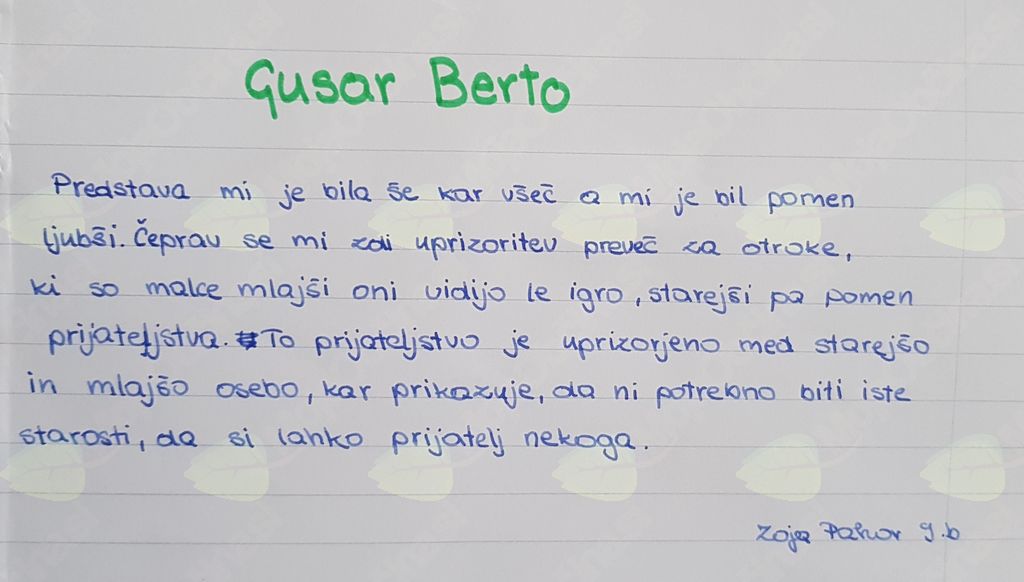 Gusar Berto
Predstava mi je bila še kar všeč a mi je bil pomen
ljubši. Čeprav se mi zdi uprizoritev preveč za otroke,
ki so malce mlajši oni vidijo le igro, starejši pa pomen
prijateljstva. To prijateljstvo je uprizorjeno med starejšo
in mlajšo osebo, kar prikazuje, da ni potrebno biti iste
starosti, da si lahko prijatelj nekoga.
Zoja Pahor 9.b